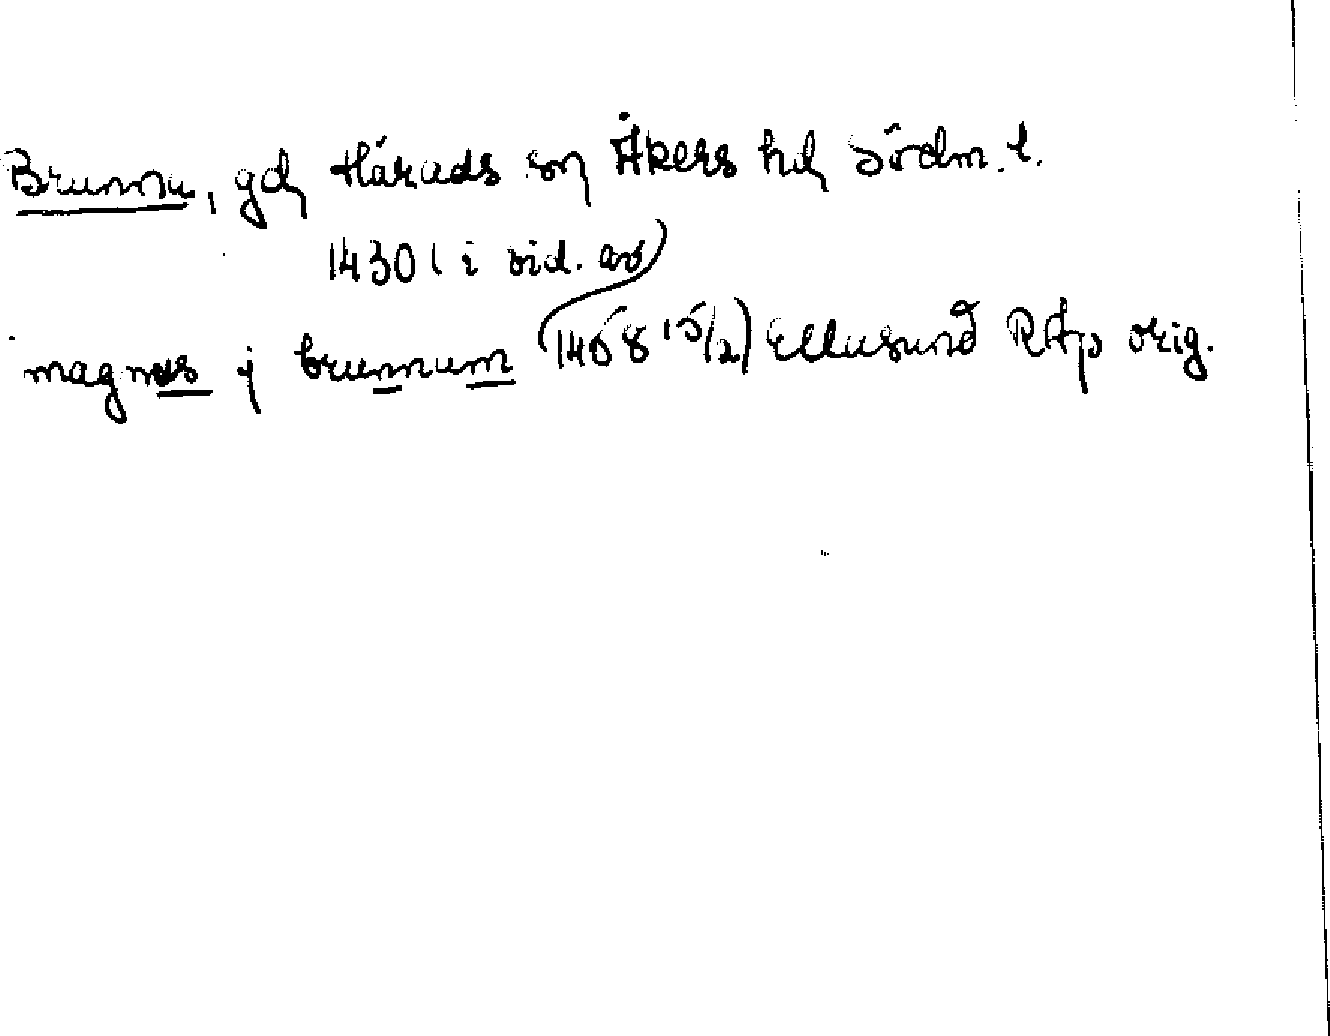 Brunna, gd Härads sn Åkers hd Södm. l.
1430 (i vid. av
magnus j brunnum 1458 15/2) Ellusund RAp orig.